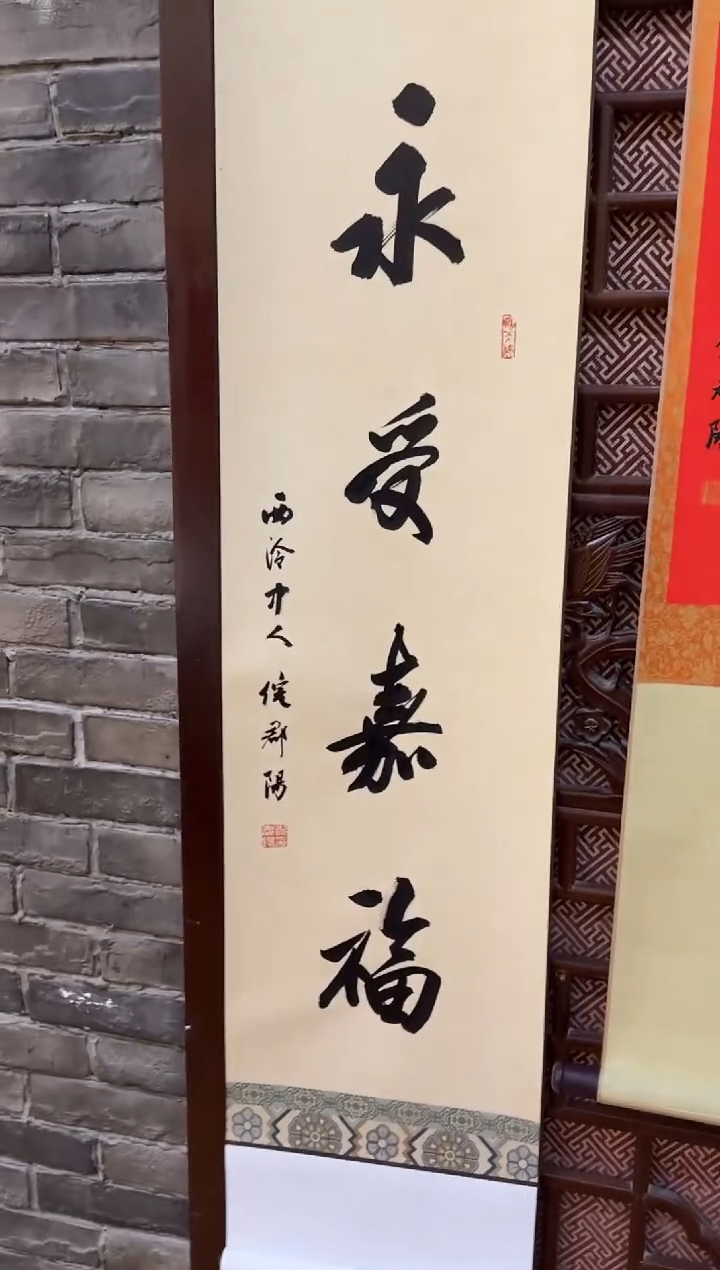 永受嘉福
西泠中人 侘郡陽